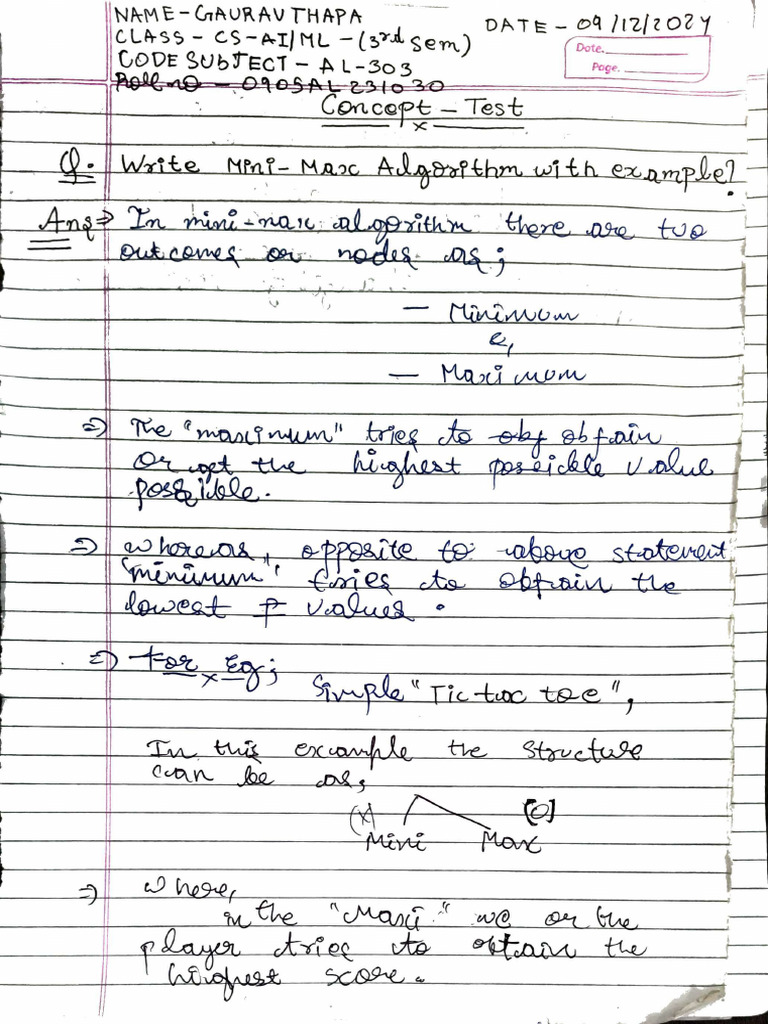 NAME - GAURAV THAPA
DATE - 09/12/2024
CLASS - CS-AI/ML - (3rd sem)
Date.
CODE SUBJECT - AL-303
Page.
Roll no - 0905AL231030
Concept - Test
Q. Write Mini-Max Algorithm with example?
Ans⇒ In mini-max algorithm there are two
outcomes or nodes as;
- Minimum
&,
- Maximum
⇒ The "maximum" tries to obj obtain
or get the highest posssible value
possible.
⇒ whereas, opposite to above statement
"minimum", tries to obtain the
lowest values.
⇒ For Eg;
Simple "Tic tac toe",
In this example the structure
can be as;
(X) [O]
Mini Max
⇒ where,
in the "Maxi" we or the
player tries to obtain the
highest score.